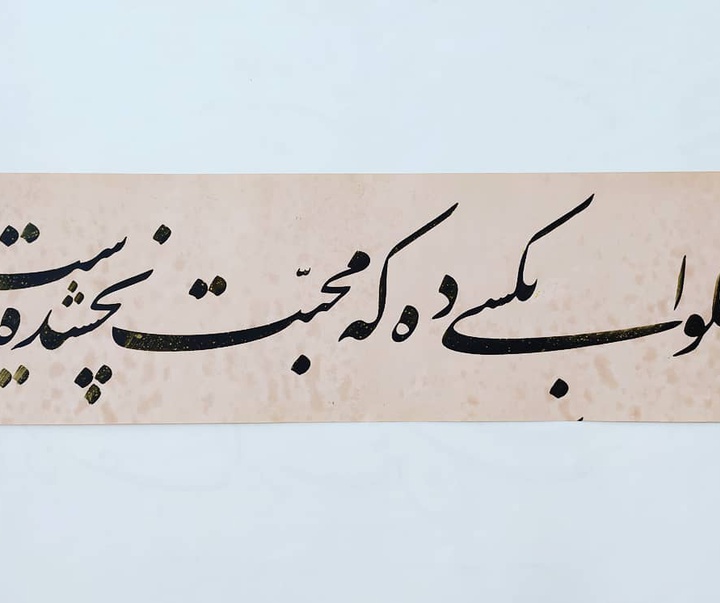 لوا بکسی ده که محبّت نچشیده ست